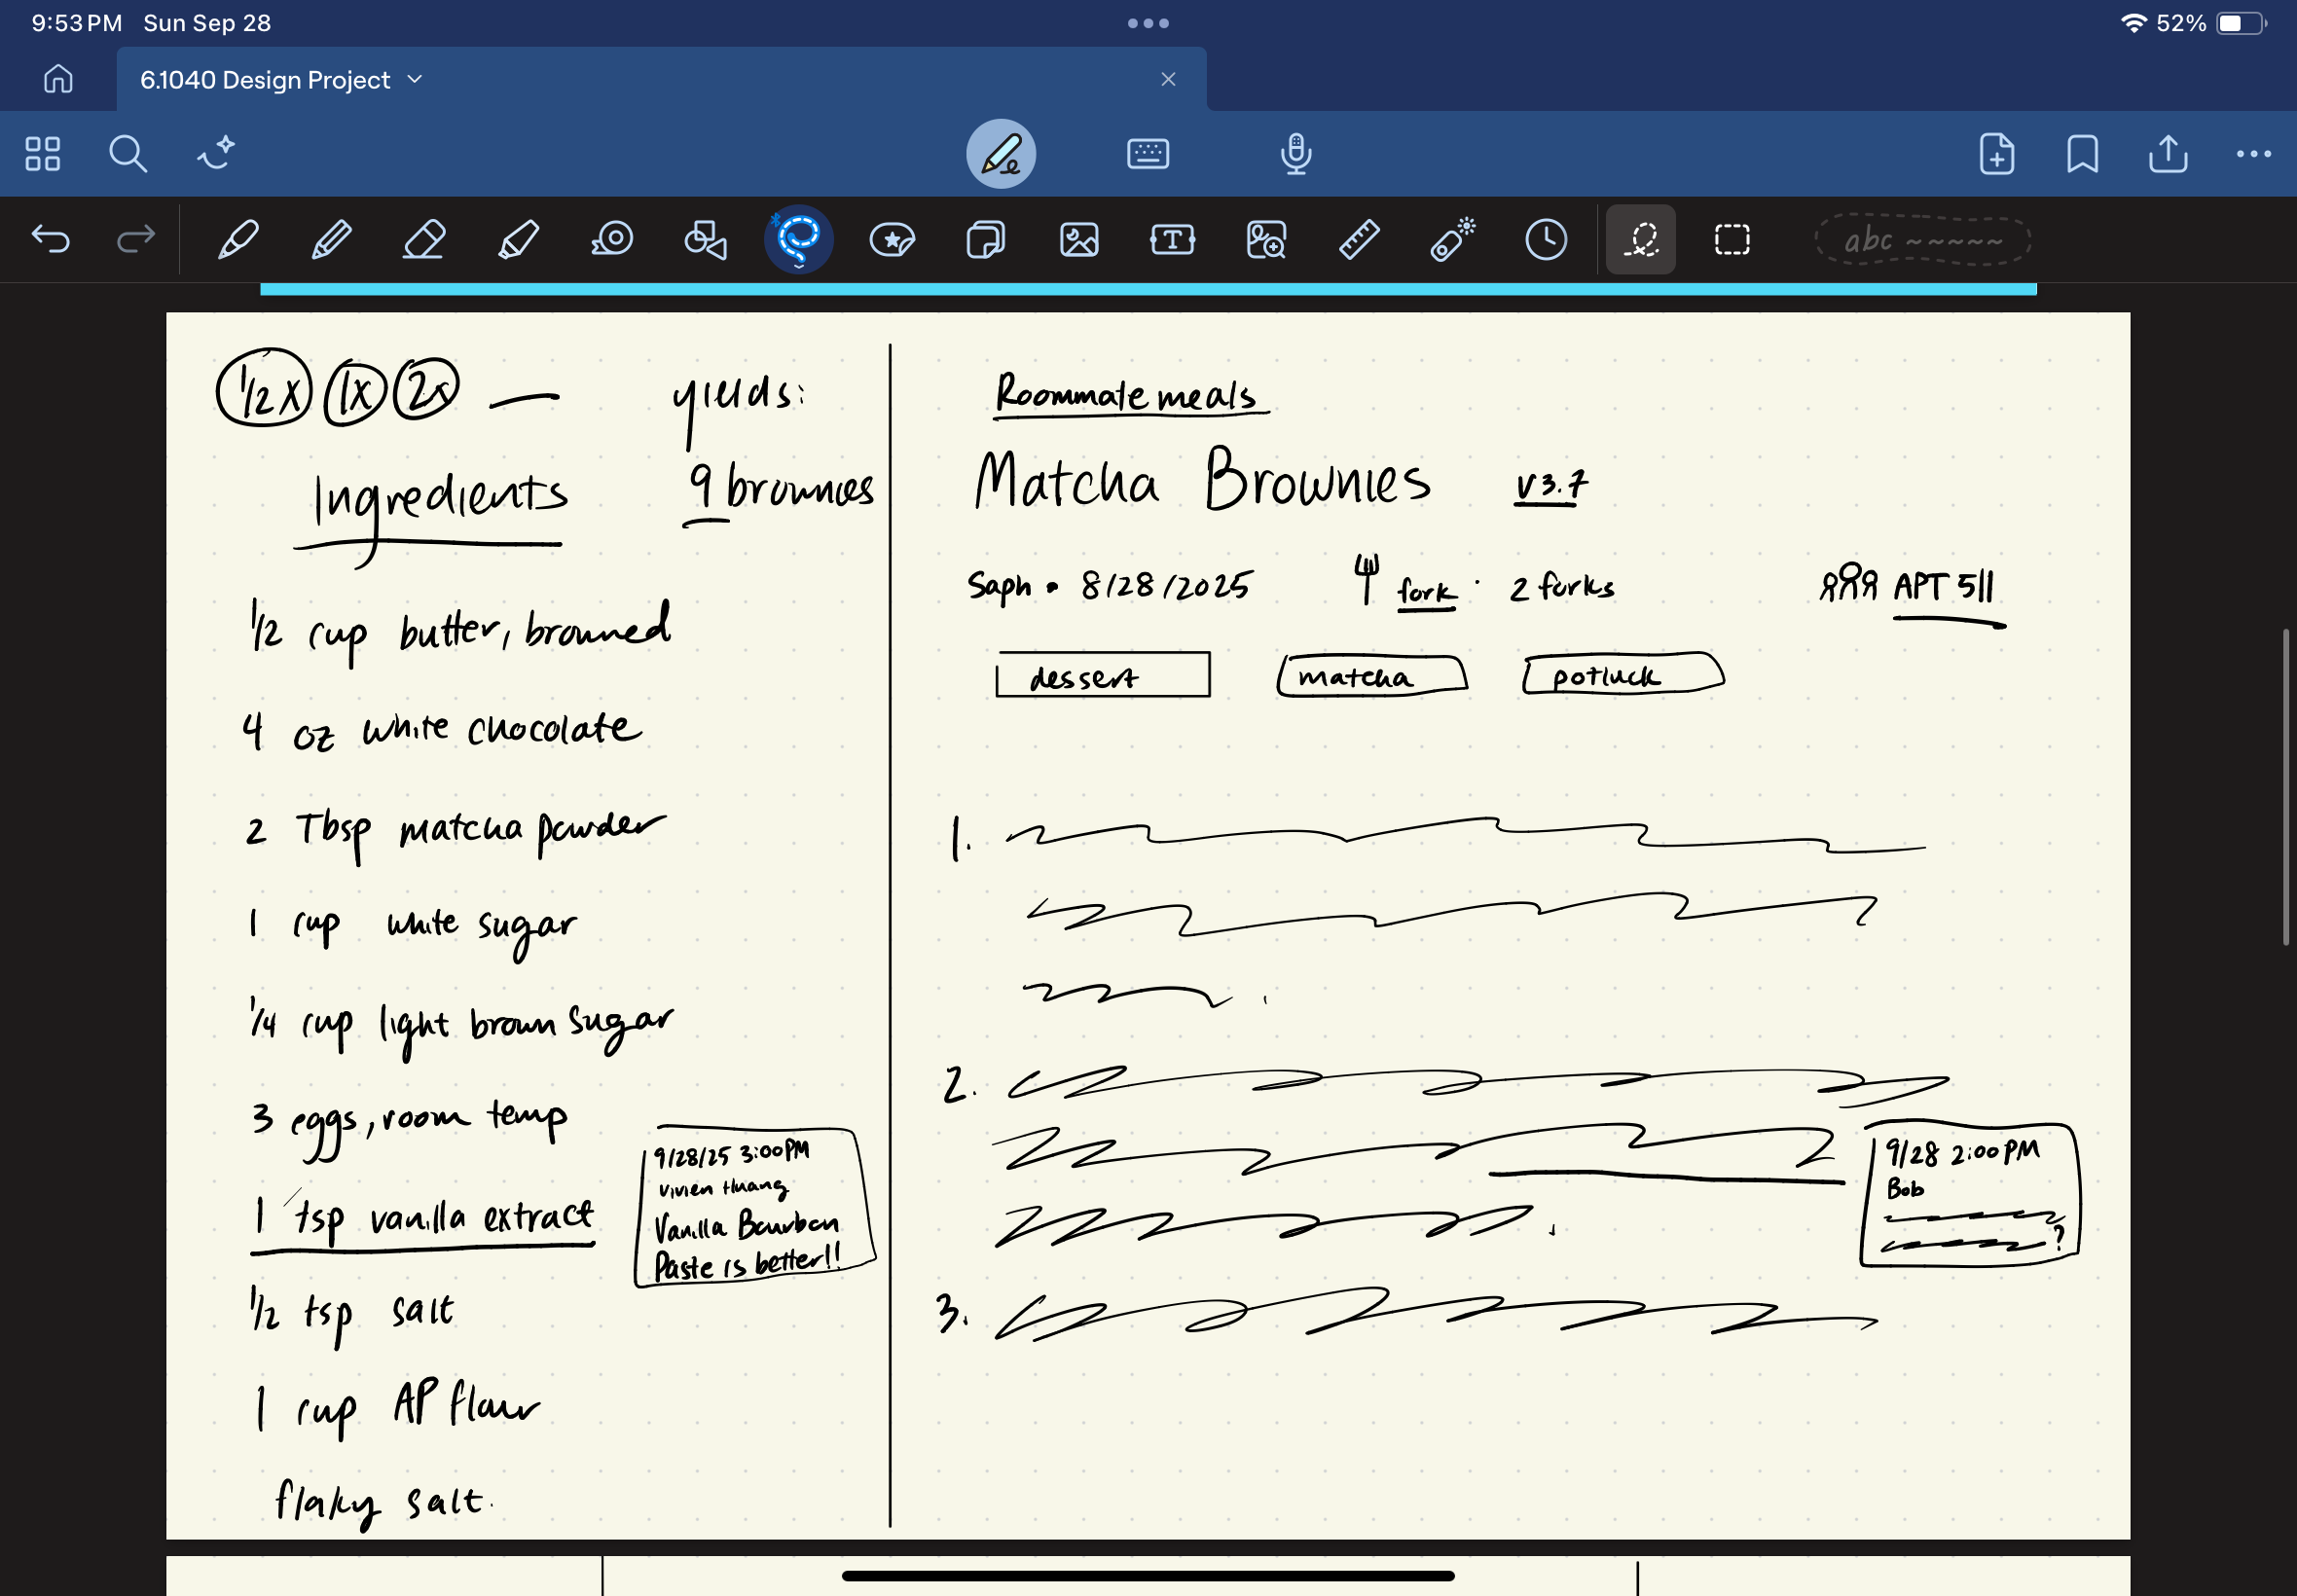 9:53 PM Sun Sep 28
52%
6.1040 Design Project
abc
1/2x 1x 2x
yields:
Ingredients
9 brownies
1/2 cup butter, browned
4 oz white chocolate
2 Tbsp matcha powder
1 cup white sugar
1/4 cup light brown sugar
3 eggs, room temp
1 tsp vanilla extract
9/28/25 3:00PM
Vivien Huang
Vanilla Bourbon
Paste is better!!
1/2 tsp salt
1 cup AP flour
flaky salt.
Roommate meals
Matcha Brownies v3.7
Saph • 8/28/2025 fork · 2 forks APT 511
dessert matcha potluck
1.
2.
9/28 2:00PM
Bob
?
3.